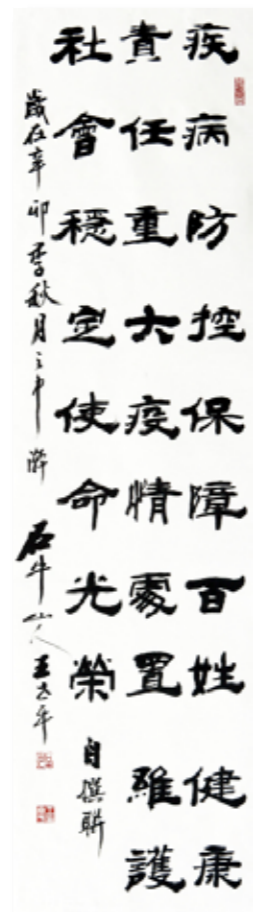 疾病防控保障百姓健康
責任重大疫情處置維護
社會穩定使命光榮 自撰聯
歲在辛卯季秋月之中澣 石牛山人王